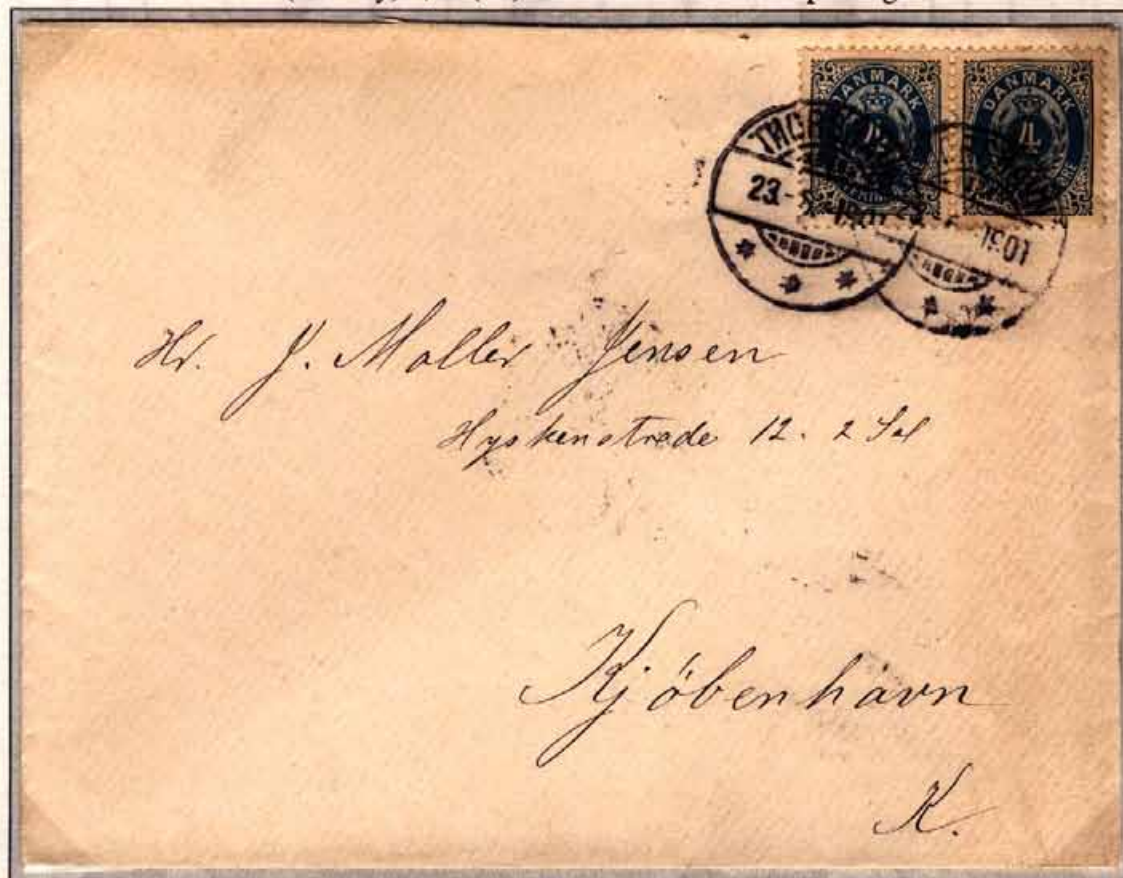 DANMARK
DANMARK
4
THOR
23.
1901
1901
Hr. J. Moller Jensen
Hyskenstrade 12. 2 Sal
Kjöbenhavn
K.